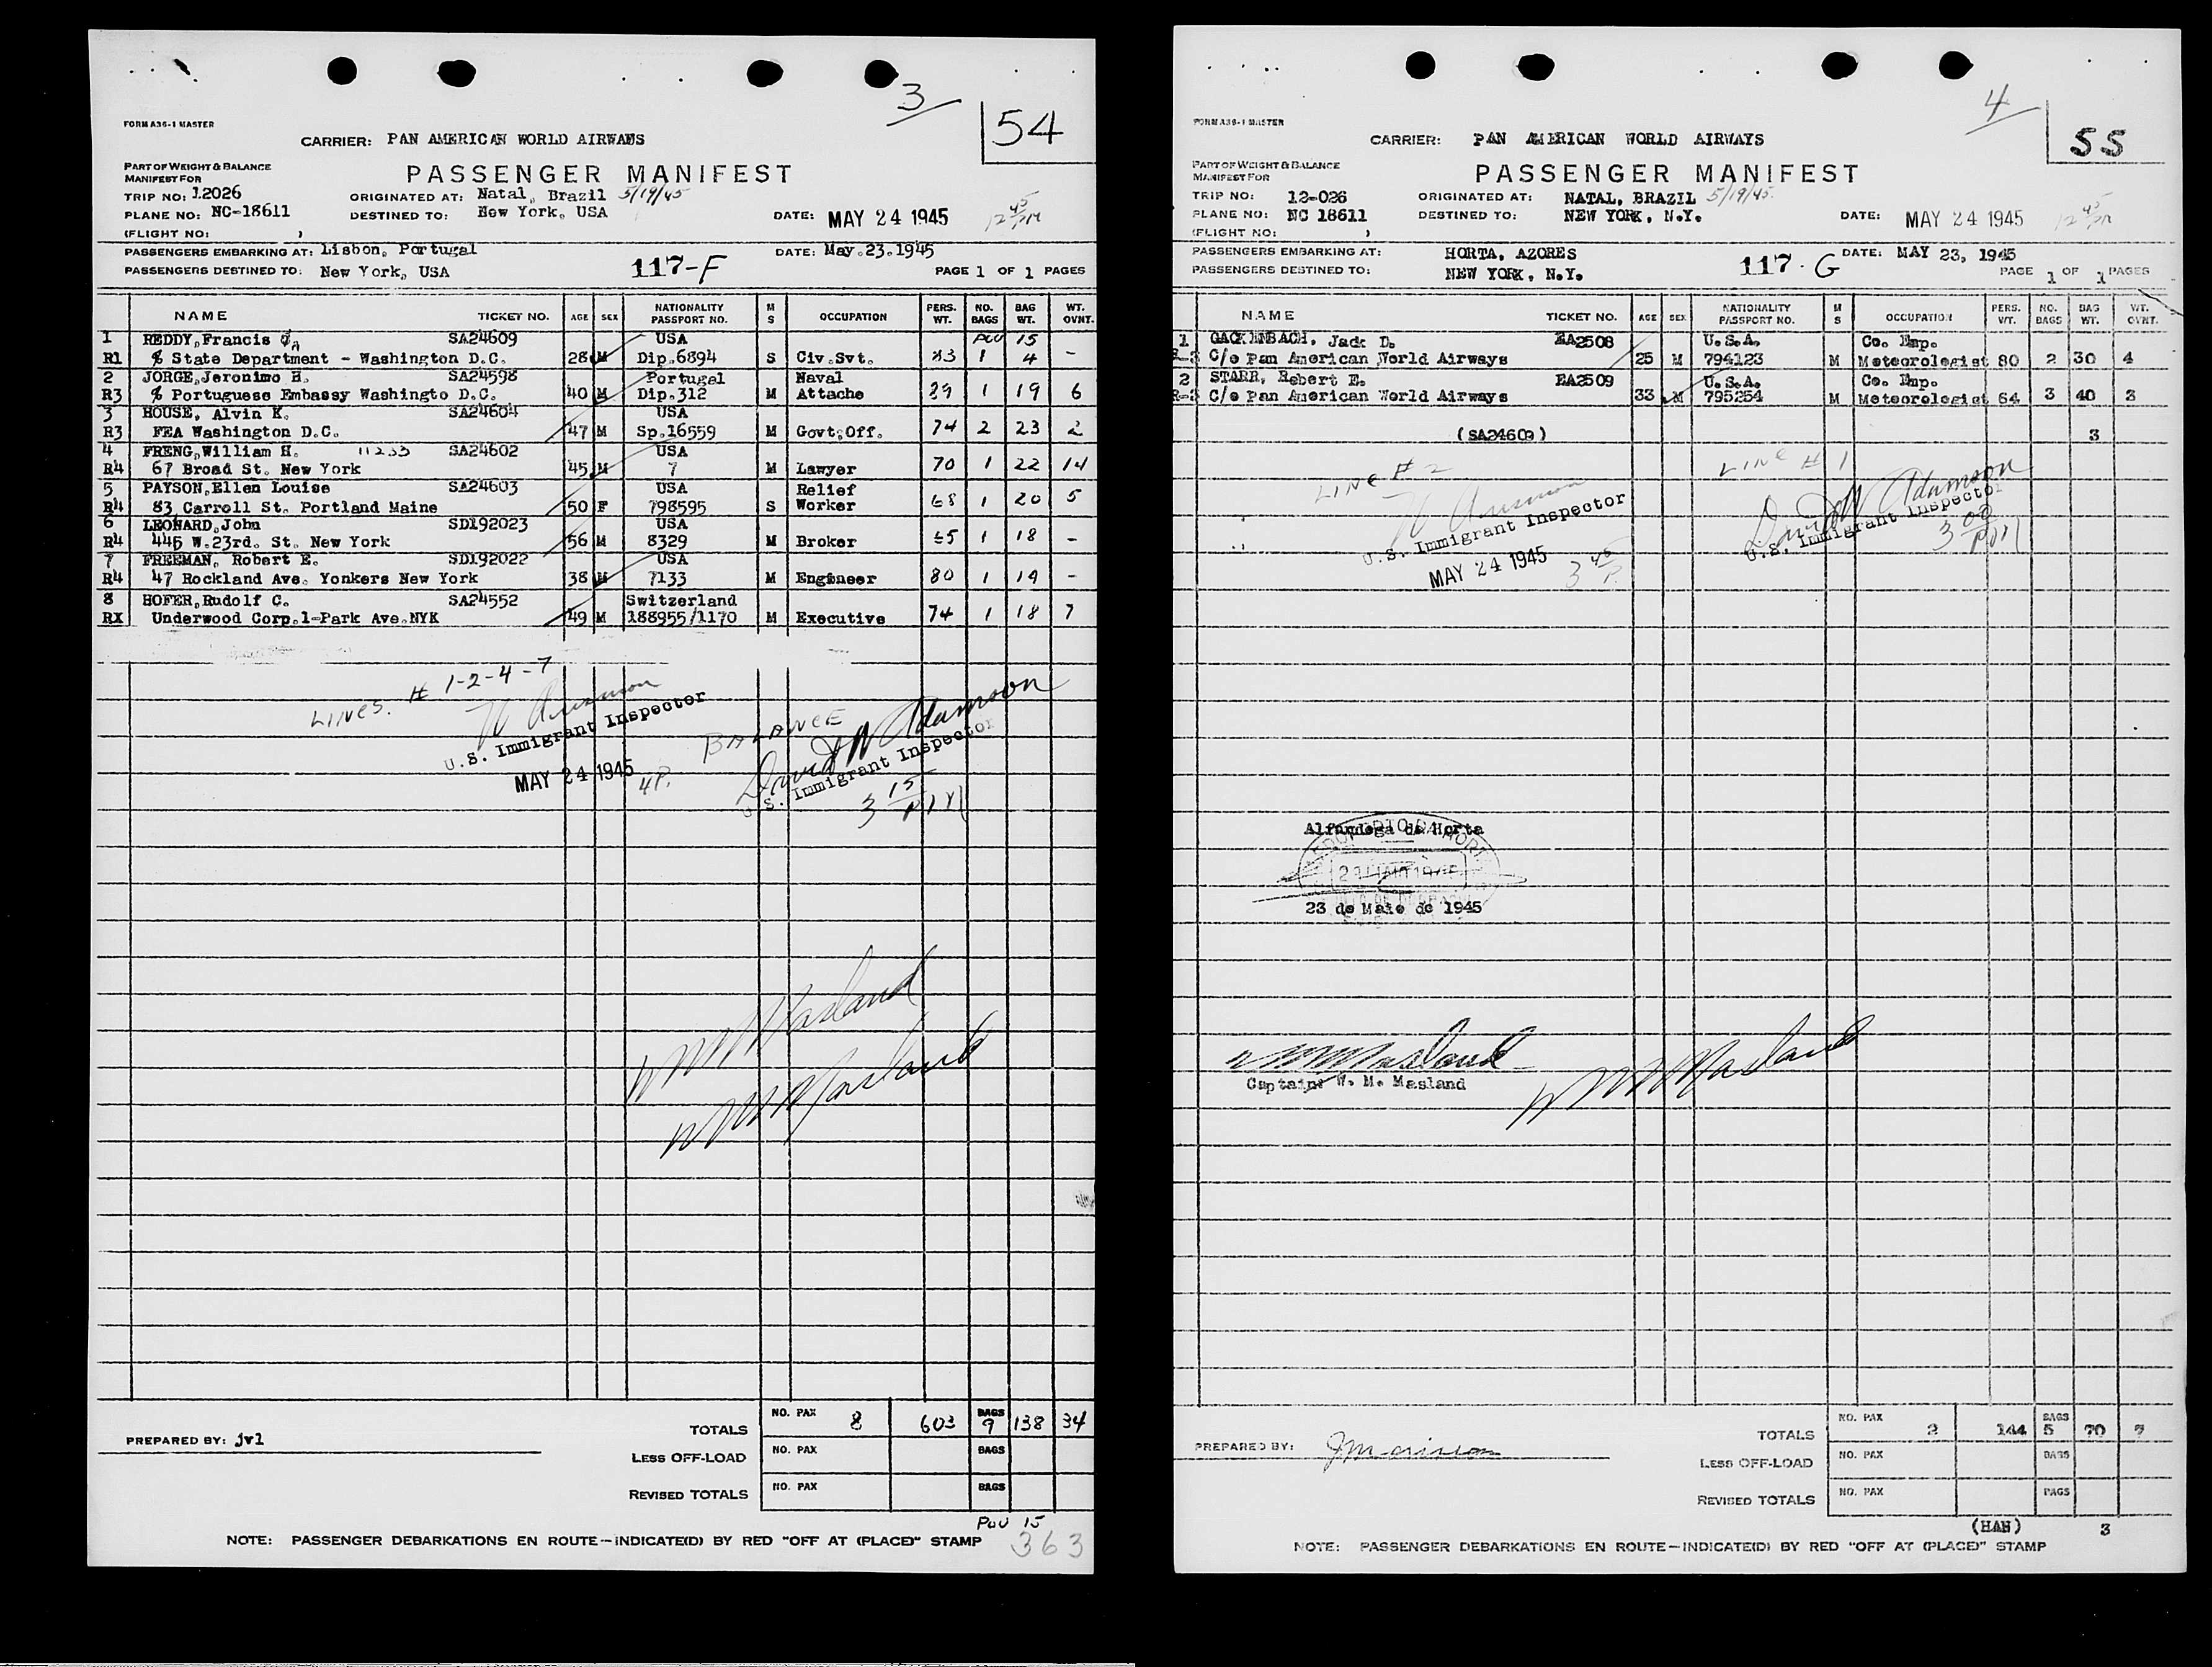 3
54
FORM A36-1 MASTER
CARRIER: PAN AMERICAN WORLD AIRWAYS
PART OF WEIGHT & BALANCE
MANIFEST FOR
PASSENGER MANIFEST
TRIP NO: 12026
ORIGINATED AT: Natal, Brazil 5/19/45
PLANE NO: NC-18611
DESTINED TO: New York, USA
DATE: MAY 24 1945 12 45 PM
(FLIGHT NO: )
PASSENGERS EMBARKING AT: Lisbon, Portugal
DATE: May.23.1945
PASSENGERS DESTINED TO: New York, USA
117-F
PAGE 1 OF 1 PAGES
NAME TICKET NO. AGE SEX NATIONALITY PASSPORT NO. M S OCCUPATION PERS. WT. NO. BAGS BAG WT. WT. OVNT.
1 REDDY, Francis SA24609 USA POU 15
R1 % State Department - Washington D.C. 28 M Dip.6894 S Civ.Svt. 83 1 4 -
2 JORGE, Jeronimo H. SA24598 Portugal Naval
R3 % Portuguese Embassy Washingto D.C. 40 M Dip.312 M Attache 89 1 19 6
3 HOUSE, Alvin K. SA24604 USA
R3 FEA Washington D.C. 47 M Sp.16559 M Govt.Off. 74 2 23 2
4 FRENG, William H. 11233 SA24602 USA
R4 67 Broad St. New York 45 M 7 M Lawyer 70 1 22 14
5 PAYSON, Ellen Louise SA24603 USA Relief
R4 83 Carroll St. Portland Maine 50 F 798595 S Worker 68 1 20 5
6 LEONARD, John SD192023 USA
R4 445 W.23rd. St. New York 56 M 8329 M Broker 65 1 18 -
7 FREEMAN, Robert E. SD192022 USA
R4 47 Rockland Ave. Yonkers New York 38 M 7133 M Engineer 80 1 14 -
8 HOFER, Rudolf C. SA24552 Switzerland
RX Underwood Corp.1-Park Ave.NYK 49 M 188955/1170 M Executive 74 1 18 7
LINES. # 1-2-4-7
U.S. Immigrant Inspector
MAY 24 1945 4P.
BALANCE
David W Adamson
U.S. Immigrant Inspector
3 15 PM
W M Masland
W M Masland
PREPARED BY: jvl
TOTALS NO. PAX 8 603 BAGS 9 138 34
LESS OFF-LOAD NO. PAX BAGS
REVISED TOTALS NO. PAX BAGS
POU 15
NOTE: PASSENGER DEBARKATIONS EN ROUTE—INDICATE(D) BY RED "OFF AT (PLACE)" STAMP
363
4
55
FORM A36-1 MASTER
CARRIER: PAN AMERICAN WORLD AIRWAYS
PART OF WEIGHT & BALANCE
MANIFEST FOR
PASSENGER MANIFEST
TRIP NO: 12-026
ORIGINATED AT: NATAL, BRAZIL 5/19/45.
PLANE NO: NC 18611
DESTINED TO: NEW YORK, N.Y.
DATE: MAY 24 1945 12 45 PM
(FLIGHT NO: )
PASSENGERS EMBARKING AT: HORTA, AZORES
DATE: MAY 23, 1945
PASSENGERS DESTINED TO: NEW YORK, N.Y.
117-G
PAGE 1 OF 1 PAGES
NAME TICKET NO. AGE SEX NATIONALITY PASSPORT NO. M S OCCUPATION PERS. WT. NO. BAGS BAG WT. WT. OVNT.
1 GACKENBACH, Jack D. EA2508 U.S.A. Co. Emp.
C/o Pan American World Airways 25 M 794123 M Meteorologist 80 2 30 4
2 STARR, Robert E. EA2509 U.S.A. Co. Emp.
C/o Pan American World Airways 33 M 795254 M Meteorologist 64 3 40 3
(SA24609) 3
LINE # 2
U.S. Immigrant Inspector
MAY 24 1945 3 45 P.
LINE # 1
David W Adamson
U.S. Immigrant Inspector
3 00 PM
Alfandega da Horta
23 de Maio de 1945
W M Masland
Captain: W. M. Masland
W M Masland
PREPARED BY:
TOTALS NO. PAX 2 144 BAGS 5 70 7
LESS OFF-LOAD NO. PAX BAGS
REVISED TOTALS NO. PAX BAGS
(HAH) 3
NOTE: PASSENGER DEBARKATIONS EN ROUTE—INDICATE(D) BY RED "OFF AT (PLACE)" STAMP